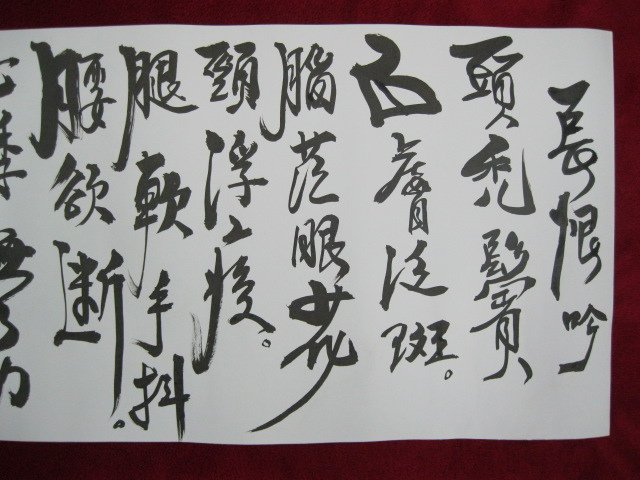 長恨吟
頭禿鬢
白膚泛斑。
腦茫眼花
頸浮
腿軟手抖
腰欲斷。
力